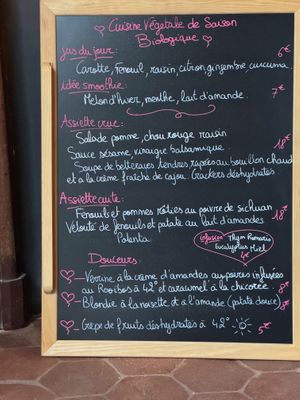 Cuisine Végétale de Saison
Biologique
jus du jour: 6€
Carotte, Fenouil, raisin, citron, gingembre, curcuma.
idée smoothie:
Melon d'hiver, menthe, lait d'amande. 7€
Assiette crue:
Salade pomme, chou rouge raisin
Sauce sésame, vinaigre balsamique. 18€
Soupe de betteraves tendres rapées au bouillon chaud
et a la crème fraîche de cajou. Crackers déshydratés
Assiette cuite:
Fenouils et pommes rôties au poivre de sichuan 18€
Velouté de fenouils et patate au lait d'amandes
Polenta.
infusion Thym Romarin
Eucalyptus Miel
4€
Douceurs
Verrine à la crème d'amandes aux poires infusées
au Rooibos à 42° et caramel à la chicorée. 8€
Blondie à la noisette et à l'amande (patate douce) 8€
Crêpe de fruits déshydratés à 42° 5€